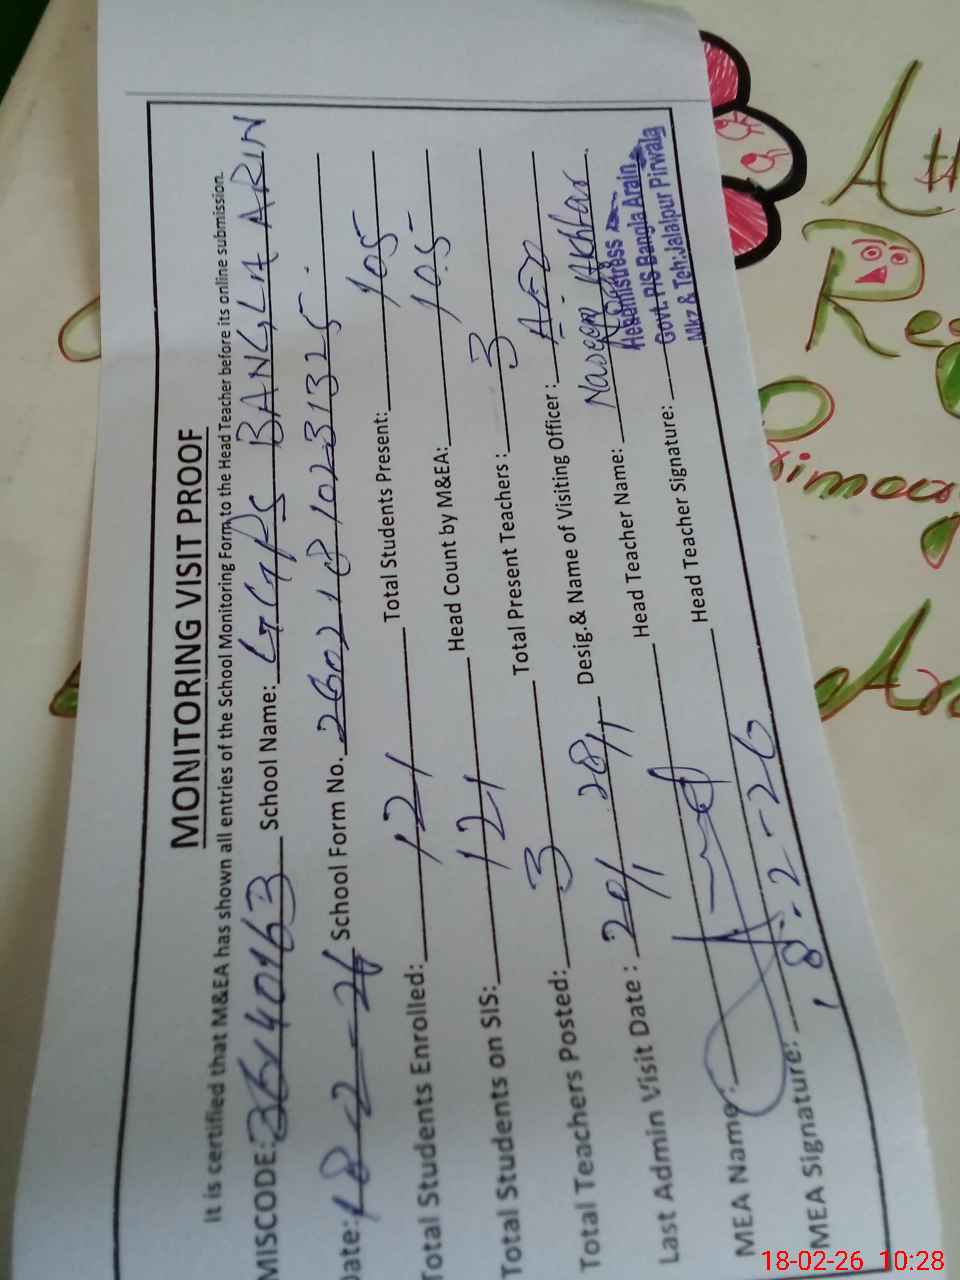 MONITORING VISIT PROOF
It is certified that M&EA has shown all entries of the School Monitoring Form to the Head Teacher before its online submission.
MISCODE: 36140163 School Name: GGPS BANGLA ARIN
Date: 18-2-26 School Form No. 26021810231325
Total Students Enrolled: 121 Total Students Present: 105
Total Students on SIS: 121 Head Count by M&EA: 105
Total Teachers Posted: 3 Total Present Teachers: 3
Last Admin Visit Date: Desig.& Name of Visiting Officer:
MEA Name: Head Teacher Name: Naseem Akhtar
MEA Signature: 18-2-26 Head Teacher Signature:
Headmistress
Govt. P/S Bangla Arain
Mkz & Teh:Jalalpur Pirwala
18-02-26 10:28